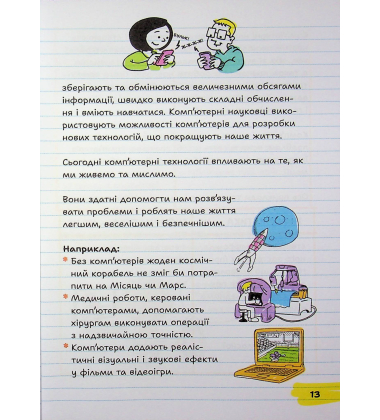 зберігають та обмінюються величезними обсягами
інформації, швидко виконують складні обчислен-
ня і вміють навчатися. Комп'ютерні науковці вико-
ристовують можливості комп'ютерів для розробки
нових технологій, що покращують наше життя.
Сьогодні комп'ютерні технології впливають на те, як
ми живемо та мислимо.
Вони здатні допомогти нам розв'язу-
вати проблеми і роблять наше життя
легшим, веселішим і безпечнішим.
Наприклад:
* Без комп'ютерів жоден косміч-
ний корабель не зміг би потра-
пити на Місяць чи Марс.
* Медичні роботи, керовані
комп'ютерами, допомагають
хірургам виконувати операції
з надзвичайною точністю.
* Комп'ютери додають реаліс-
тичні візуальні і звукові ефекти
у фільми та відеоігри.
13